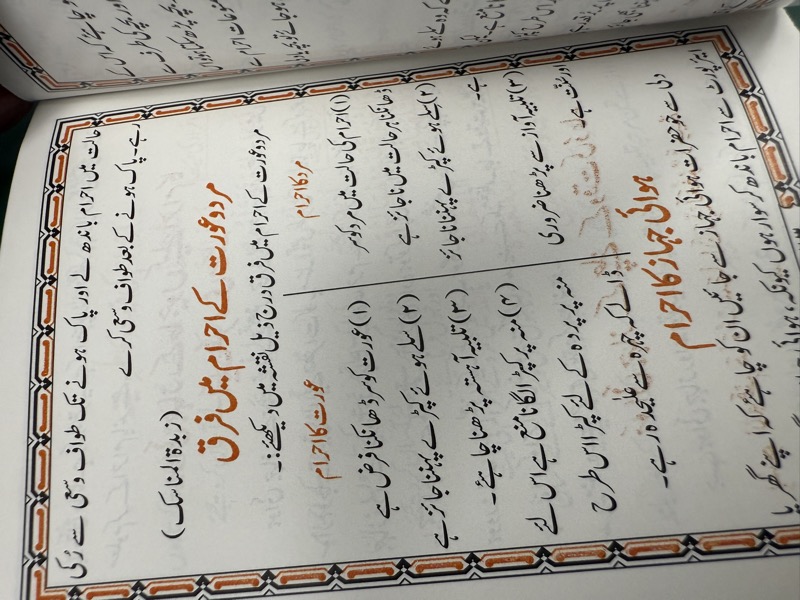 حالت میں احرام باندھ لے اور پاک ہونے تک طواف و سعی سے رُکی
رہے۔ پاک ہونے کے بعد طواف و سعی کرے
(زبدۃ المناسک)
مرد و عورت کے احرام میں فرق
مرد و عورت کے احرام میں فرق درج ذیل نقشہ میں دیکھئے:۔
مرد کا احرام
(۱) احرام کی حالت میں مرد کو سر
ڈھانکنا ہر حالت میں نا جائز ہے
(۲) سلے ہوئے کپڑے پہننا نا جائز
ہے۔
(۳) تلبیہ آواز سے پڑھنا ضروری
اور سنت ہے
عورت کا احرام
(۱) عورت کو سر ڈھانکنا فرض ہے
(۲) سلے ہوئے کپڑے پہننا جائز ہے
(۳) تلبیہ آہستہ پڑھنا چاہئے۔
(۴) منہ پر کپڑا لگانا منع ہے اس لئے
منہ پر پردہ کے لئے کپڑا اس طرح
ڈالے کہ چہرہ سے علیحدہ رہے۔
ہوائی جہاز کا احرام
دلی سے جو حضرات ہوائی جہاز سے جائیں ان کو چاہئے کہ اپنے گھر یا
ایئرپورٹ سے احرام باندھ کر سوار ہوں کیونکہ ہوائی